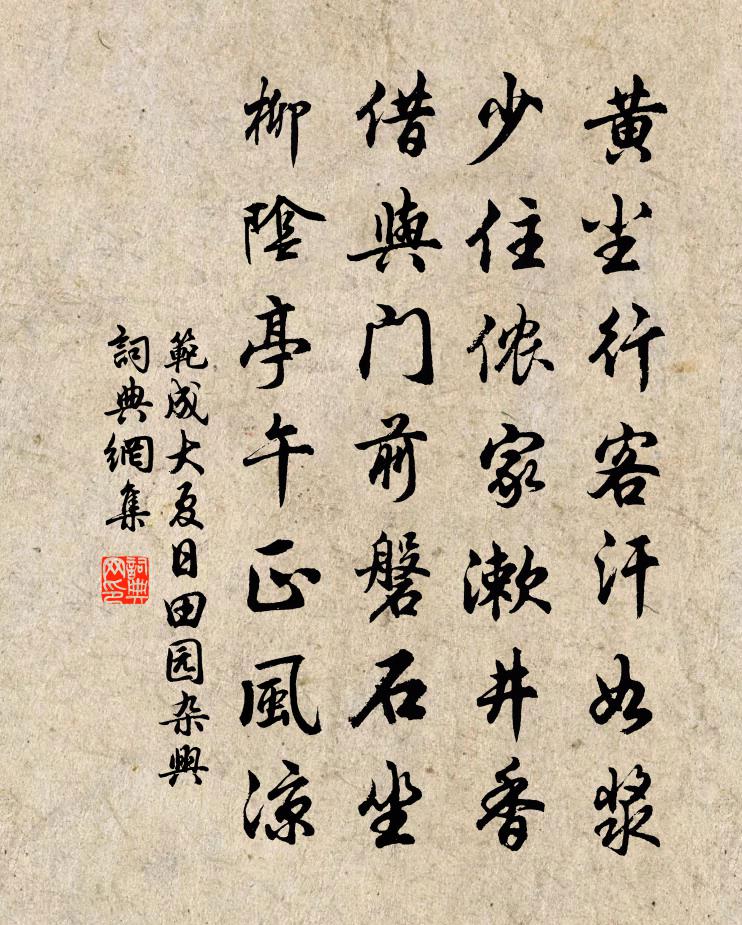 黄尘行客汗如浆
少住侬家漱井香
借與门前磐石坐
柳陰亭午正風凉
範成大夏日田园杂興
詞典網集
詞典
网印